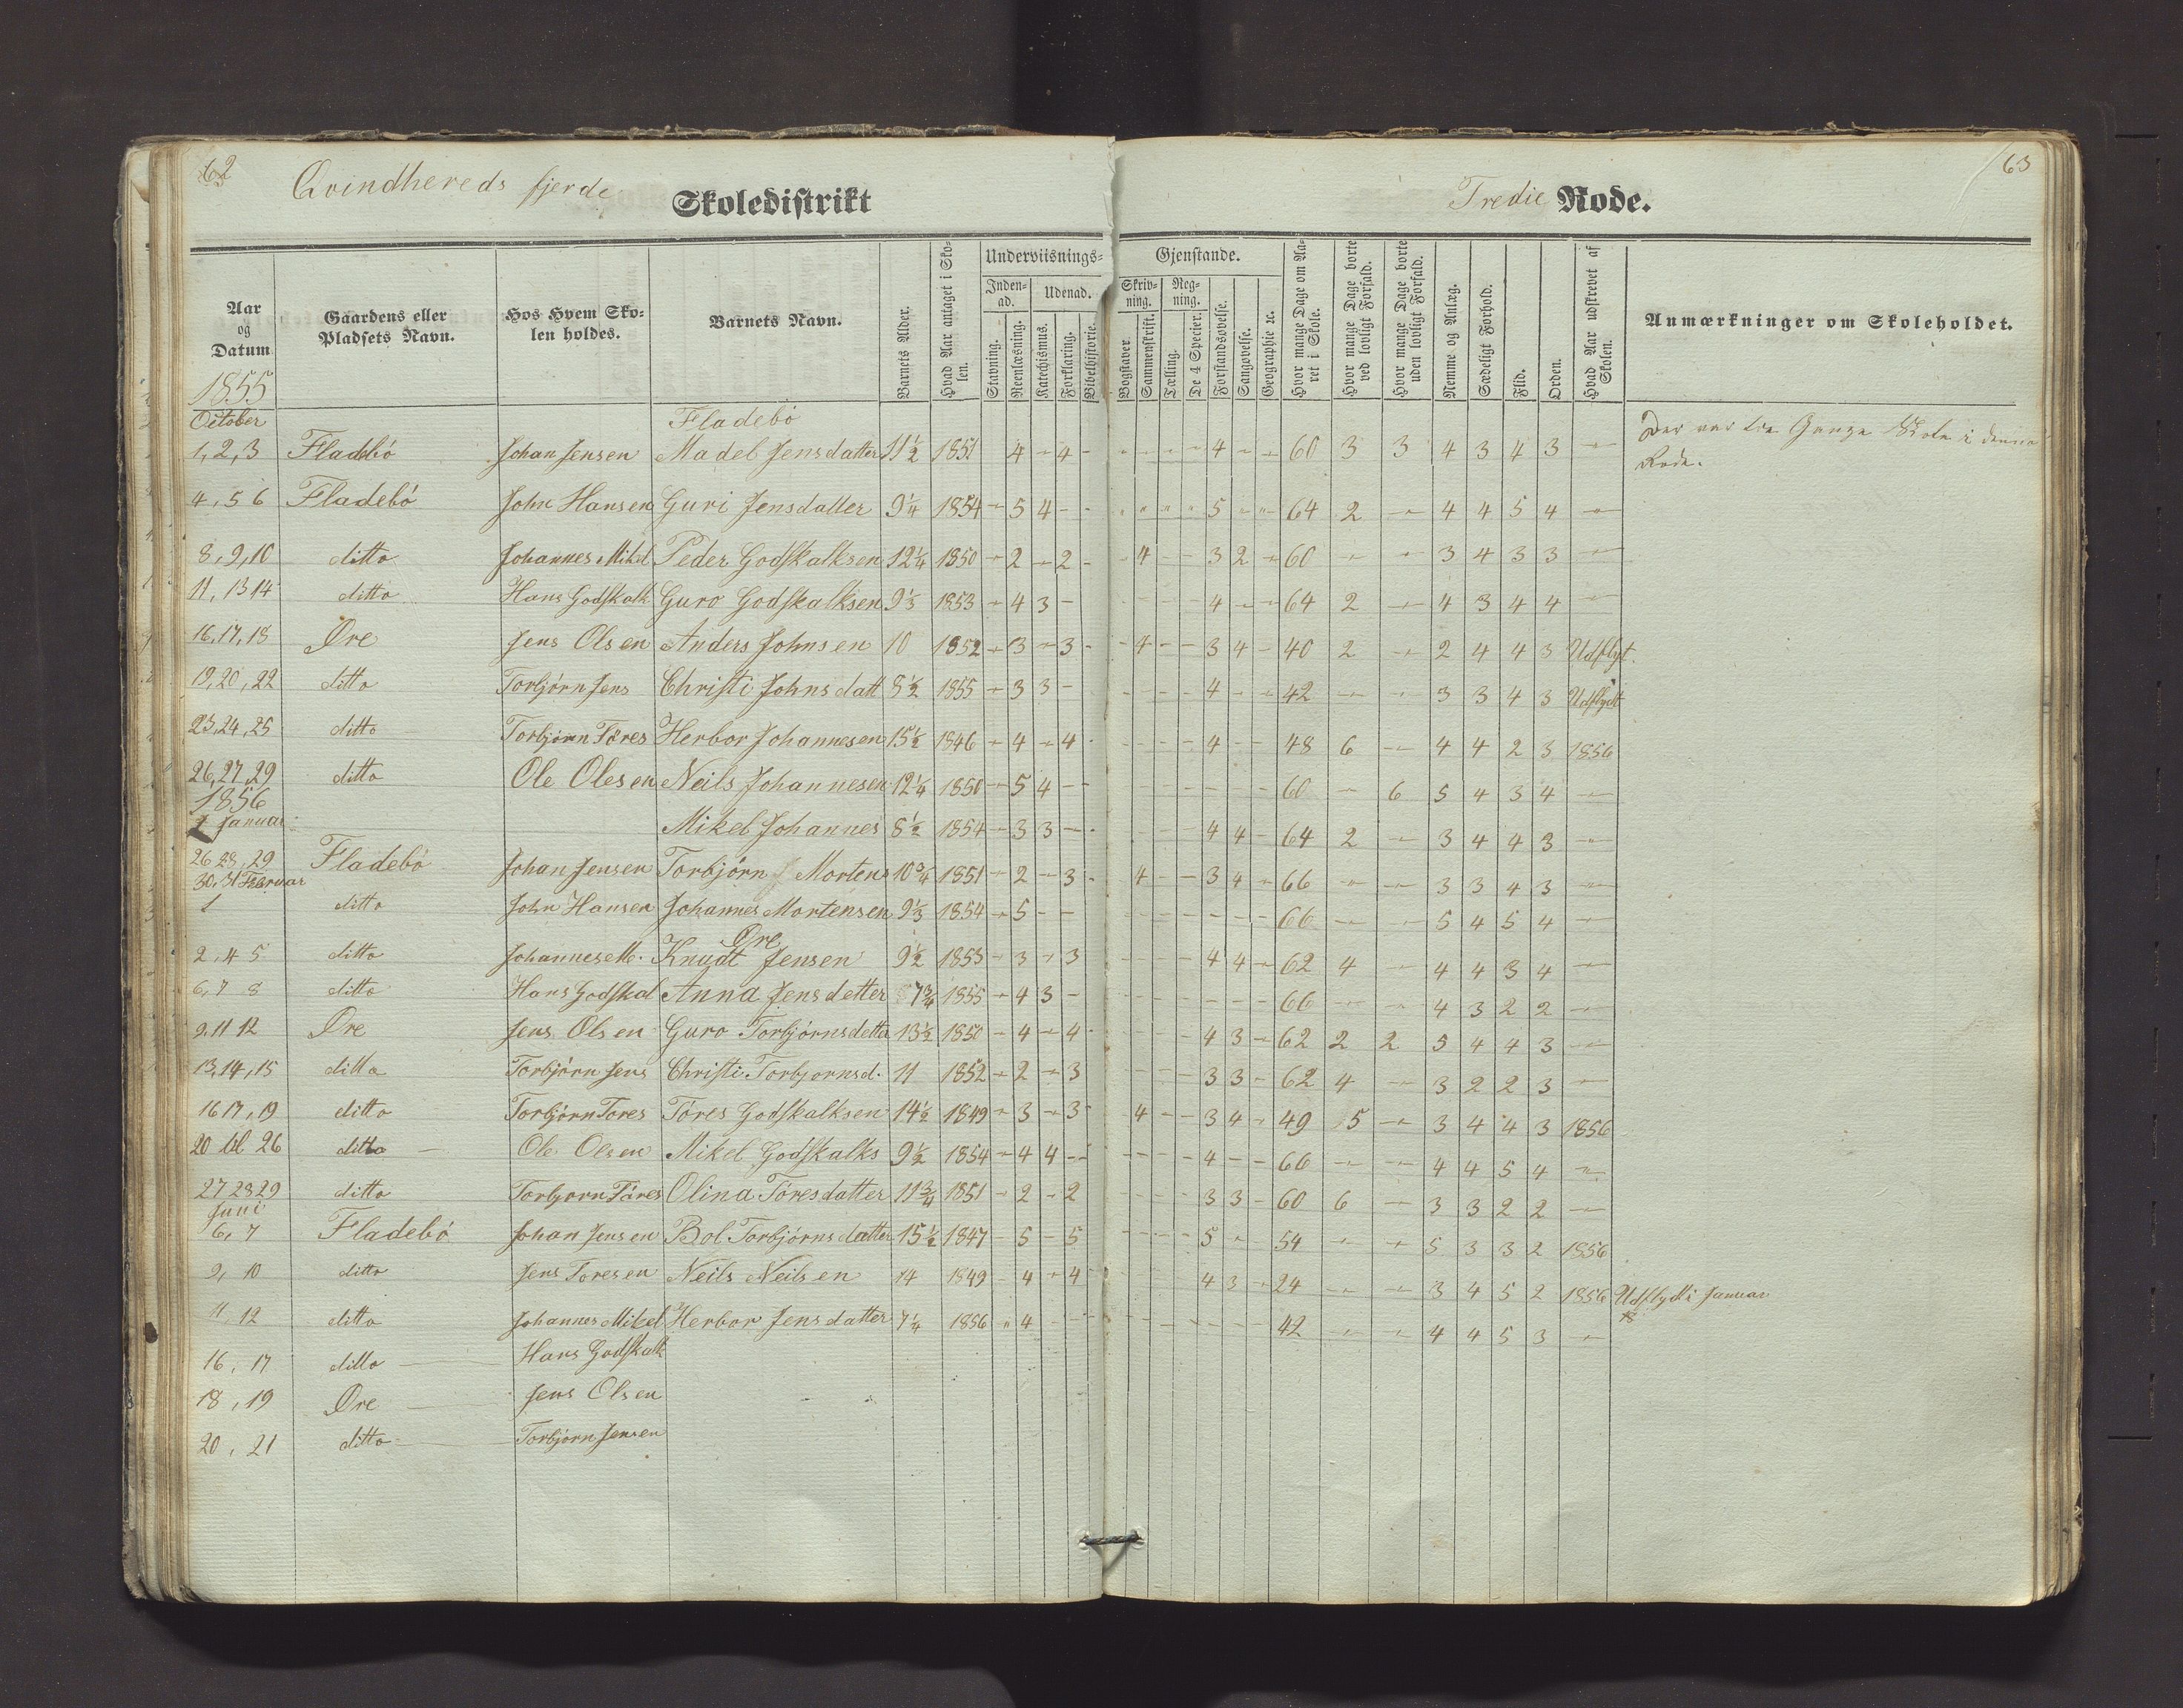 62
Qvindhereds fjerde Skoledistrikt
Tredie Rode.
63
Aar og Datum
Gaardens eller Pladsets Navn.
Hos Hvem Skolen holdes.
Barnets Navn.
Barnets Alder.
Hvad Aar antaget i Skolen.
Underviisnings-
Gjenstande.
Inden-ad.
Udenad.
Skriv-ning.
Reg-ning.
Stavning.
Reenlæsning.
Katechismus.
Forklaring.
Bibelhistorie.
Bogstaver
Sammenskrift.
Tælling.
De 4 Specier.
Forstandsøvelse.
Sangøvelse.
Geographie ec.
Hvor mange Dage om Aaret i Skole.
Hvor mange Dage borte ved lovligt Forfald.
Hvor mange Dage borte uden lovligt Forfald.
Nemme og Anlæg.
Sædeligt Forhold.
Flid.
Orden.
Hvad Aar udskrevet af Skolen.
Anmærkninger om Skoleholdet.
1855
October
Fladebó
1, 2, 3 Fladebó Johan Jensen Madel Jensdatter 11½ 1851 4 - 4 - - - - - 4 - - 60 3 3 4 3 4 3 -
Der var tre Gange Skole i denne
Rode.
4, 5 6 Fladebó John Hansen Guri Jensdatter 9¼ 1854 - 5 4 - - - - - - 5 - - 64 2 - 4 4 5 4 -
8, 9, 10 ditto Johannes Mikel Peder Godskalksen 12¼ 1850 - 2 - 2 - - 4 - - 3 2 - 60 - - 3 4 3 3 -
11, 13 14 ditto Hans Godskalk Guro Godskalksen 9⅓ 1853 - 4 3 - - - - - 4 - - 64 2 - 4 3 4 4 -
16, 17, 18 Øre Jens Olsen Anders Johnsen 10 1852 - 3 - 3 - - 4 - - 3 4 - 40 2 - 2 4 4 3 Udflyt.
19, 20, 22 ditto Torbjórn Jens Christi Johnsdatt 8½ 1855 - 3 3 - - - - - 4 - - 42 - - 3 3 4 3 Udflydt
23, 24, 25 ditto Torbjórn Tóres Herbor Johannesen 15½ 1846 - 4 - 4 - - - - - 4 - - 48 6 - 4 4 2 3 1856
26, 27, 29 ditto Ole Olesen Neils Johannesen 12¼ 1850 - 5 4 - - - - - - - - - 60 - 6 5 4 3 4 -
1856
Januar
Mikel Johannes 8½ 1854 - 3 3 - - - - - 4 4 - 64 2 - 3 4 4 3 -
26 28, 29 Fladebó Johan Jensen Torbjórn Mortens 10¾ 1851 - 2 - 3 - 4 - - 3 4 - 66 - - 3 3 4 3 -
30, 31 Februar
1 ditto John Hansen Johannes Mortensen 9⅓ 1854 - 5 - - - - - - - - - 66 - - 5 4 5 4 -
Øre
2, 4 5 ditto Johannes M. Knudt Jensen 9½ 1853 - 3 - 3 - - - - 4 4 - 62 4 - 4 4 3 4 -
6, 7 8 ditto Hans Godskal Anna Jensdetter 7¾ 1855 - 4 3 - - - - - - - - 66 - - 4 3 2 2 -
9, 11 12 Øre Jens Olsen Guro Torbjórnsdetter 13½ 1850 - 4 - 4 - - - - - 4 3 - 62 2 2 5 4 4 3 -
13, 14, 15 ditto Torbjórn Jens Christi Torbjornsd. 11 1852 - 2 - 3 - - - - 3 3 - 62 4 - 3 2 2 3 -
16 17, 19 ditto Torbjórn Tores Tóres Godskalksen 14½ 1849 - 3 - 3 - - 4 - - 3 4 - 49 5 - 3 4 4 3 1856
20 til 26 ditto - Ole Olesen Mikel Godskalks 9½ 1854 - 4 4 - - - - - - 4 - - 66 - - 4 4 5 4 -
27 28 29 ditto Torbjorn Tóres Olina Tóresdatter 11¾ 1851 - 2 - 2 - - - - 3 3 - 60 6 - 3 3 2 2 -
Juni
6, 7 Fladebó Johan Jensen Bol Torbjórnsdatter 15½ 1847 - 5 - 5 - - - - 5 - 54 - - 5 3 3 2 1856
9, 10 ditto Jens Toresen Neils Neilsen 14 1849 - 4 - 4 - - - 4 3 - 24 - - 3 4 5 2 1856 Udflydt i Januar
11, 12 ditto Johannes Mikel Herbor Jensdatter 7¼ 1856 - 4 - - - - - - - - - 42 - - 4 4 5 3 -
16, 17 ditto Hans Godskalk
18, 19 Øre Jens Olsen
20, 21 ditto Torbjorn Jensen